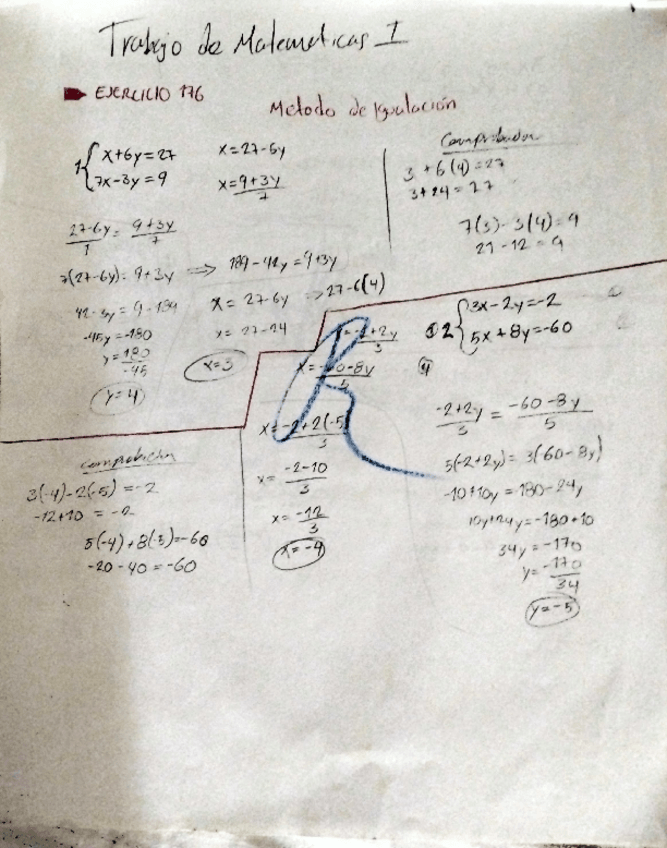 Trabajo de Matematicas I
EJERCICIO 176
Metodo de Igualación
1 { x+6y=27
7x-3y=9
x=27-6y
x=9+3y/7
Comprobación
3+6(4)=27
3+24=27
7(3)-3(4)=9
21-12=9
27-6y/1 = 9+3y/7
7(27-6y)=9+3y => 189-42y=9+3y
-45y=-180
y=180/-45
y=4
x=27-6y => 27-6(4)
x=27-24
x=3
2 { 3x-2y=-2
5x+8y=-60
x=-2+2y/3
x=-60-8y/5
-2+2y/3 = -60-8y/5
5(-2+2y)=3(-60-8y)
-10+10y=-180-24y
10y+24y=-180+10
34y=-170
y=-170/34
y=-5
x=-2+2(-5)/3
x=-2-10/3
x=-12/3
x=-4
Comprobación
3(-4)-2(-5)=-2
-12+10=-2
5(-4)+8(-5)=-60
-20-40=-60